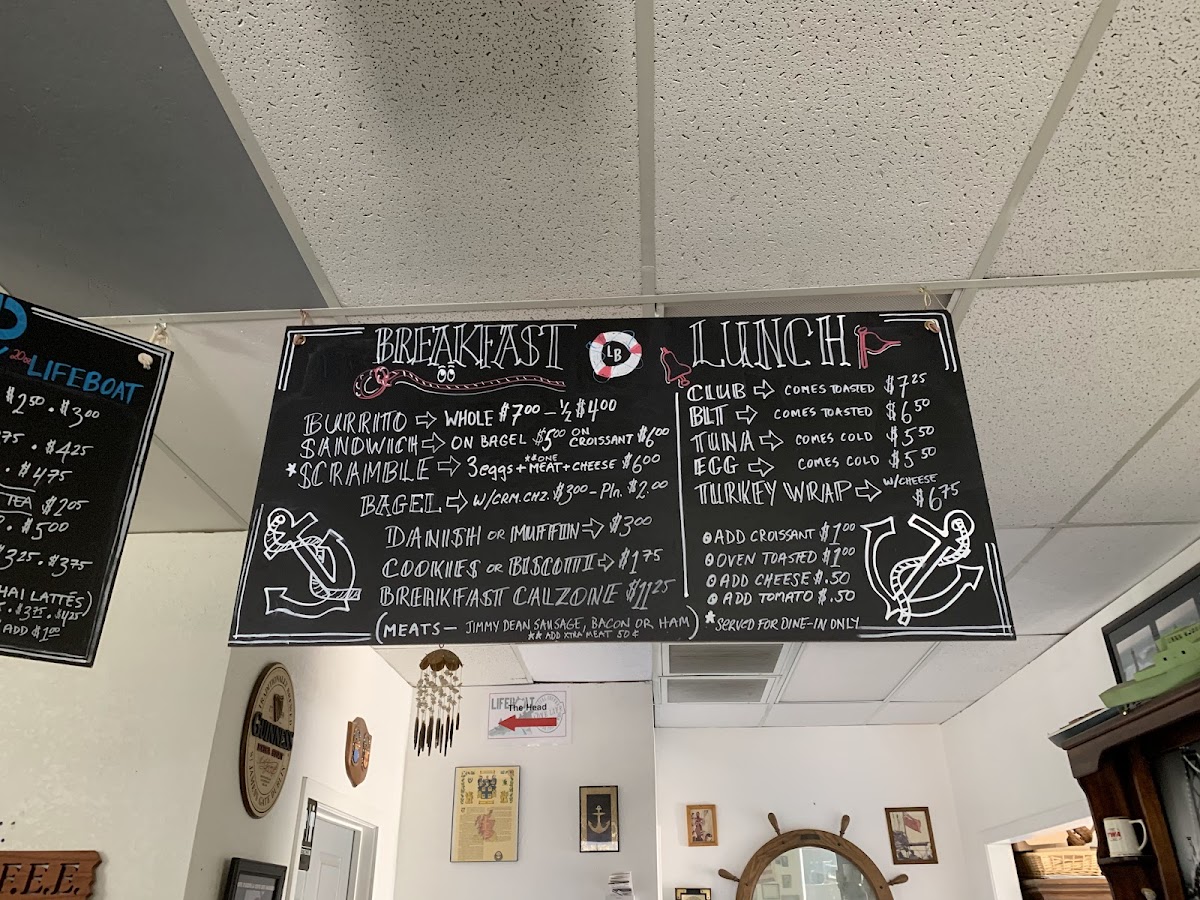 LIFEBOAT
20oz
$2.50 . $3.00
75 . $4.25
. $4.75
TEA $2.05
. $5.00
$3.25 . $3.75
HAI LATTÉS)
. $3.75 . $4.25
ADD $1.00
BREAKFAST
LB
BURRITO ⇨ WHOLE $7.00 – ½ $4.00
SANDWICH ⇨ ON BAGEL $5.00 ON CROISSANT $6.00
*SCRAMBLE ⇨ 3 eggs + **ONE MEAT + CHEESE $6.00
BAGEL ⇨ W/CRM.CHZ. $3.00 – Pln. $2.00
DANISH OR MUFFIN ⇨ $3.00
COOKIES OR BISCOTTI ⇨ $1.75
BREAKFAST CALZONE $11.25
(MEATS — JIMMY DEAN SAUSAGE, BACON OR HAM)
** ADD XTRA MEAT 50¢
LUNCH
CLUB ⇨ COMES TOASTED $7.25
BLT ⇨ COMES TOASTED $6.50
TUNA ⇨ COMES COLD $5.50
EGG ⇨ COMES COLD $5.50
TURKEY WRAP ⇨ W/CHEESE $6.75
ADD CROISSANT $1.00
OVEN TOASTED $1.00
ADD CHEESE $.50
ADD TOMATO $.50
*SERVED FOR DINE-IN ONLY
GUINNESS
LIFEBOAT
The Head
F.E.E.